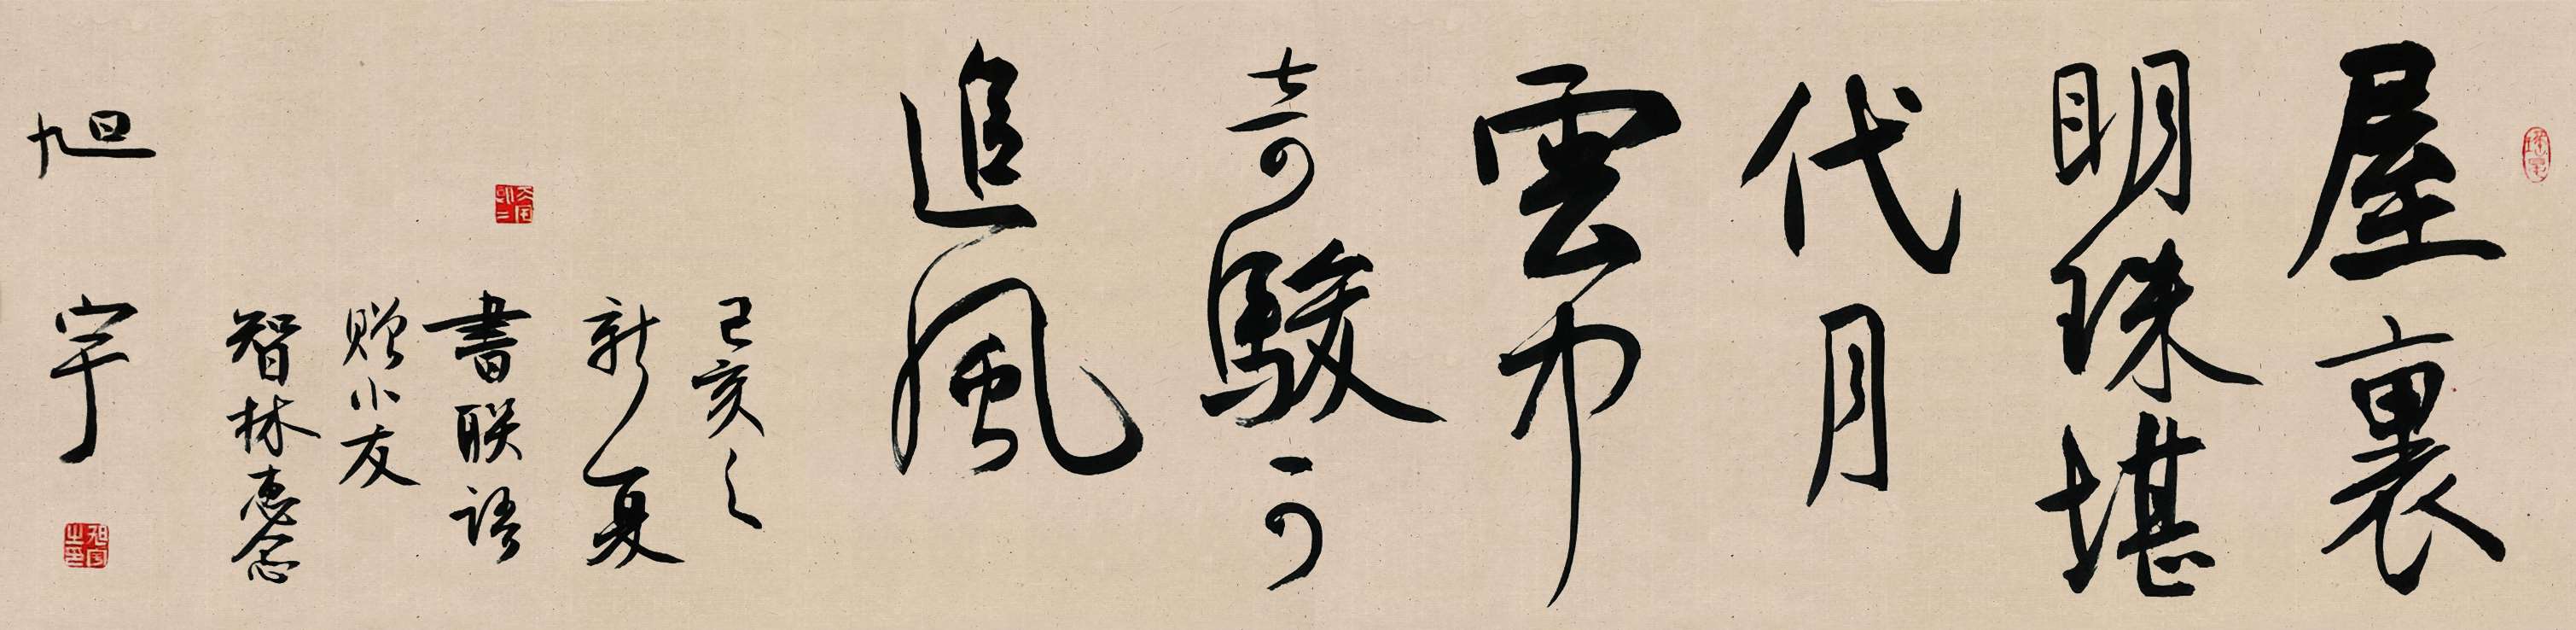 屋裏
明珠堪
代月
雲中
奇駿可
追風
己亥之
新夏
書联語
赠小友
智林惠念
旭宇
旭宇之印